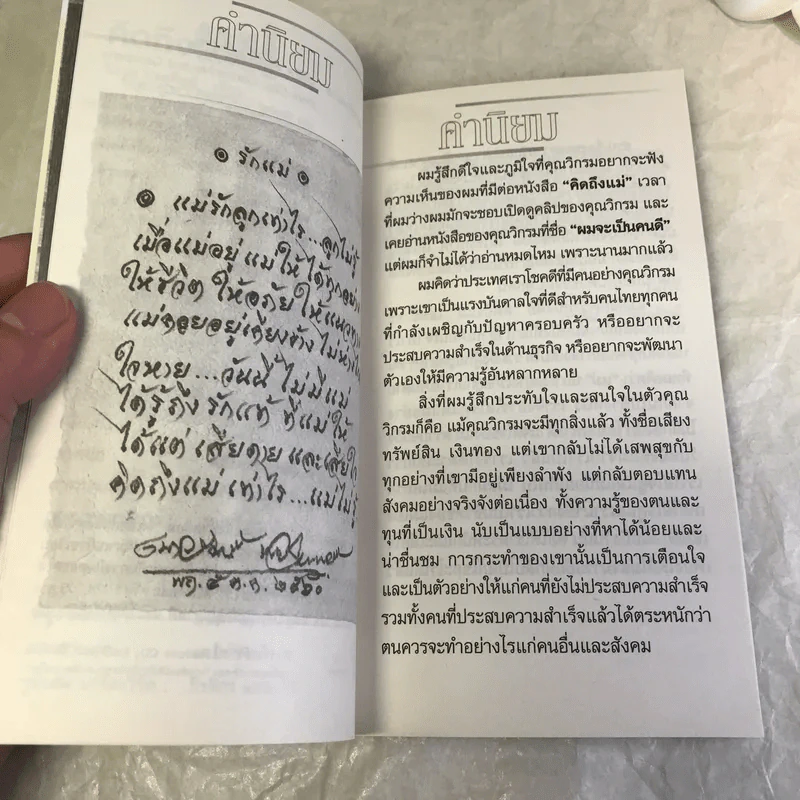 คำนิยม
รักแม่
แม่รักลูกเท่าไร...ลูกไม่รู้
เมื่อแม่อยู่ แม่ให้ ได้ทุกอย่าง
ให้ชีวิต ให้อภัย ให้แนวทาง
แม่คอยอยู่เคียงข้าง ไม่ห่าง
ใจหาย...วันนี้ ไม่มีแม่
ได้รู้ถึง รักแท้ ที่แม่ให้
ได้แต่ เสียดาย และเสียใจ
คิดถึงแม่ เท่าไร...แม่ไม่รู้
พฤ. ๕ ต.ค. ๒๕๖๐
คำนิยม
ผมรู้สึกดีใจและภูมิใจที่คุณวิกรมอยากจะฟัง
ความเห็นของผมที่มีต่อหนังสือ “คิดถึงแม่” เวลา
ที่ผมว่างผมมักจะชอบเปิดดูคลิปของคุณวิกรม และ
เคยอ่านหนังสือของคุณวิกรมที่ชื่อ “ผมจะเป็นคนดี”
แต่ผมก็จำไม่ได้ว่าอ่านหมดไหม เพราะนานมากแล้ว
ผมคิดว่าประเทศเราโชคดีที่มีคนอย่างคุณวิกรม
เพราะเขาเป็นแรงบันดาลใจที่ดีสำหรับคนไทยทุกคน
ที่กำลังเผชิญกับปัญหาครอบครัว หรืออยากจะ
ประสบความสำเร็จในด้านธุรกิจ หรืออยากจะพัฒนา
ตัวเองให้มีความรู้อันหลากหลาย
สิ่งที่ผมรู้สึกประทับใจและสนใจในตัวคุณ
วิกรมก็คือ แม้คุณวิกรมจะมีทุกสิ่งแล้ว ทั้งชื่อเสียง
ทรัพย์สิน เงินทอง แต่เขากลับไม่ได้เสพสุขกับ
ทุกอย่างที่เขามีอยู่เพียงลำพัง แต่กลับตอบแทน
สังคมอย่างจริงจังต่อเนื่อง ทั้งความรู้ของตนและ
ทุนที่เป็นเงิน นับเป็นแบบอย่างที่หาได้น้อยและ
น่าชื่นชม การกระทำของเขานั้นเป็นการเตือนใจ
และเป็นตัวอย่างให้แก่คนที่ยังไม่ประสบความสำเร็จ
รวมทั้งคนที่ประสบความสำเร็จแล้วได้ตระหนักว่า
ตนควรจะทำอย่างไรแก่คนอื่นและสังคม